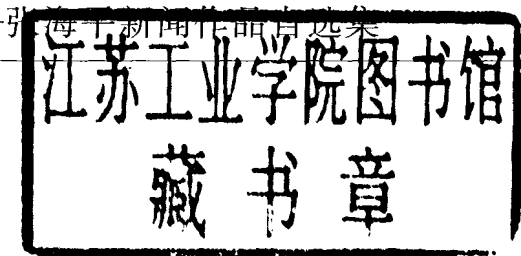 张海平新闻作品自选集
江苏工业学院图书馆
藏书章